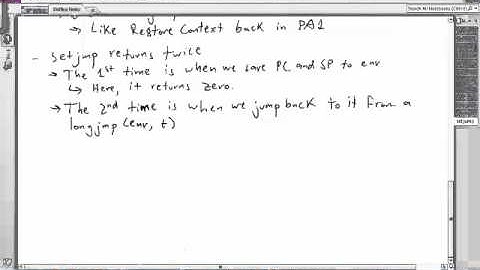 → Like Restore Context back in PA1
- setjmp returns twice
→ The 1st time is when we save PC and SP to env
↳ Here, it returns zero.
→ The 2nd time is when we jump back to it from a
longjmp (env, t)